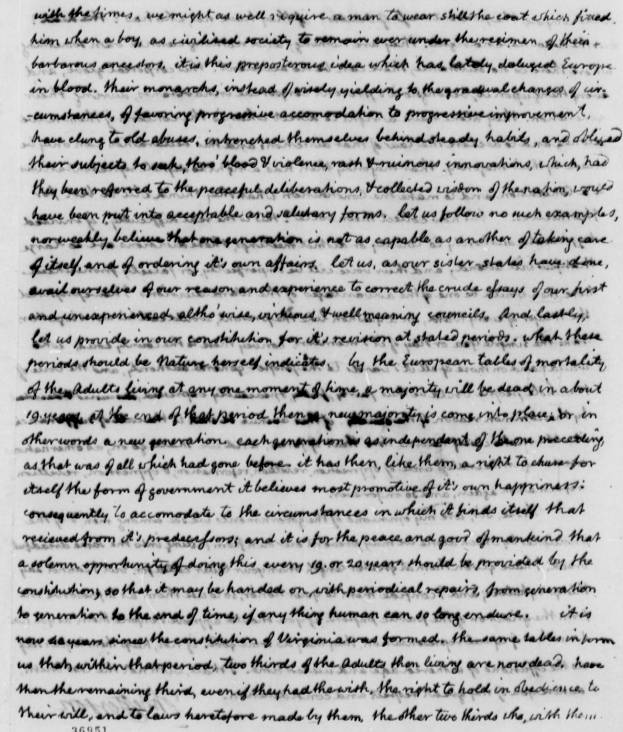 with the times. we might as well require a man to wear still the coat which fitted
him when a boy, as civilised society to remain ever under the regimen of their
barbarous ancestors. it is this preposterous idea which has lately deluged Europe
in blood. their monarchs, instead of wisely yielding to the gradual changes of cir-
-cumstances, of favoring progressive accomodation to progressive improvement,
have clung to old abuses, intrenched themselves behind steady habits, and obliged
their subjects to seek, thro' blood & violence, rash & ruinous innovations, which, had
they been referred to the peaceful deliberations, & collected wisdom of the nation, would
have been put into acceptable and salutary forms. let us follow no such examples,
nor weakly believe that one generation is not as capable as another of taking care
of itself, and of ordering it's own affairs. let us, as our sister-states have done,
avail ourselves of our reason and experience to correct the crude essays of our first
and unexperienced, altho' wise, virtuous & well meaning councils. And lastly,
let us provide in our constitution for it's revision at stated periods. what these
periods should be Nature herself indicates. by the European tables of mortality
of the Adults living at any one moment of time, a majority will be dead in about
19 years. at the end of that period then a new majority is come into place; or in
other words a new generation. each generation is as independent of the one preceding
as that was of all which had gone before. it has then, like them, a right to chuse for
itself the form of government it believes most promotive of it's own happiness:
consequently to accomodate to the circumstances in which it finds itself that
recieved from it's predecessors; and it is for the peace and good of mankind that
a solemn opportunity of doing this every 19. or 20 years should be provided by the
constitution; so that it may be handed on, with periodical repairs, from generation
to generation to the end of time, if any thing human can so long endure. it is
now 40 years since the constitution of Virginia was formed. the same tables inform
us that, within that period, two thirds of the Adults then living are now dead. have
then the remaining third, even if they had the wish, the right to hold in obedience to
their will, and to laws heretofore made by them, the other two thirds who, with them
36951